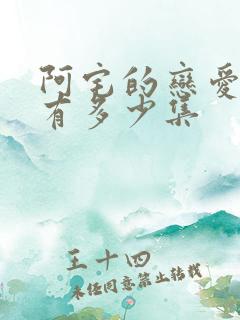 阿宅的戀愛
有多少集
王十四
未经同意禁止转载